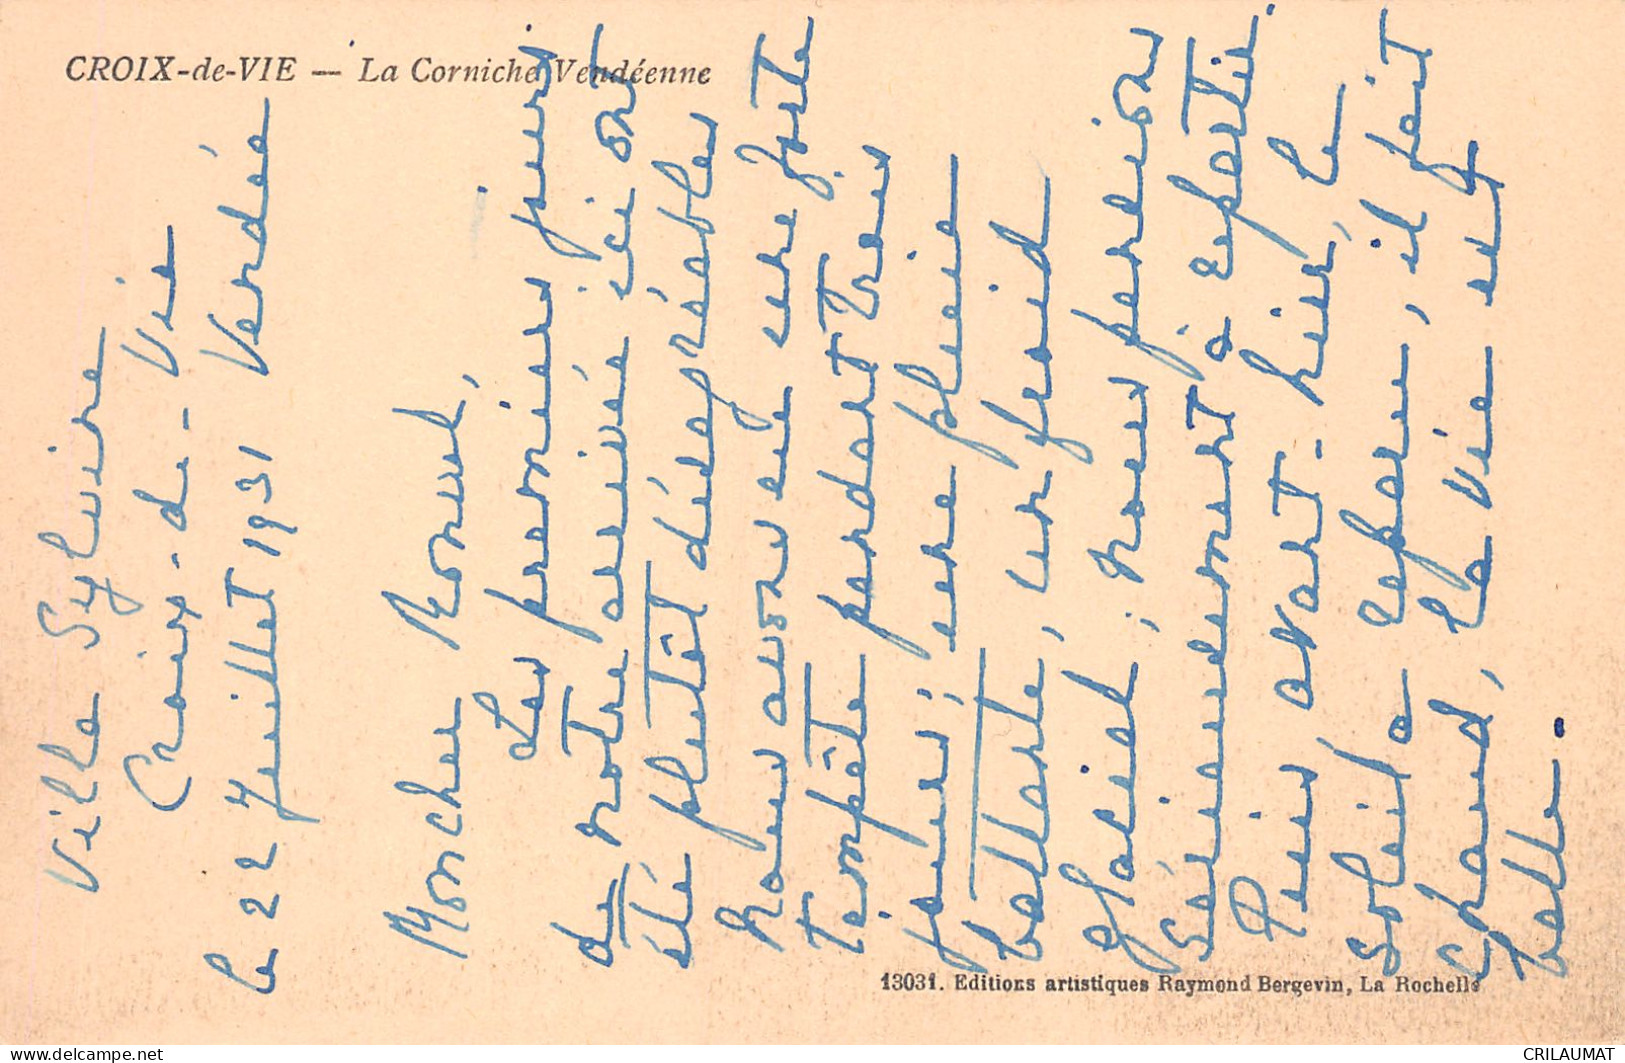 CROIX-de-VIE — La Corniche Vendéenne
Villa Sylvire
Croix-de-Vie
le 22 Juillet 1931 Vendée
Mon cher
Les premiers jours
de notre arrivée ici ont
été plutôt désagréables
nous avons eu une forte
tempête pendant trois
jours ; une pluie
battante, un froid
glacial ; nous pensions
sérieusement à repartir.
Puis avant-hier, le
soleil a reparu, il fait
chaud, la vie est
belle.
13031. Editions artistiques Raymond Bergevin, La Rochelle
www.delcampe.net
CRILAUMAT